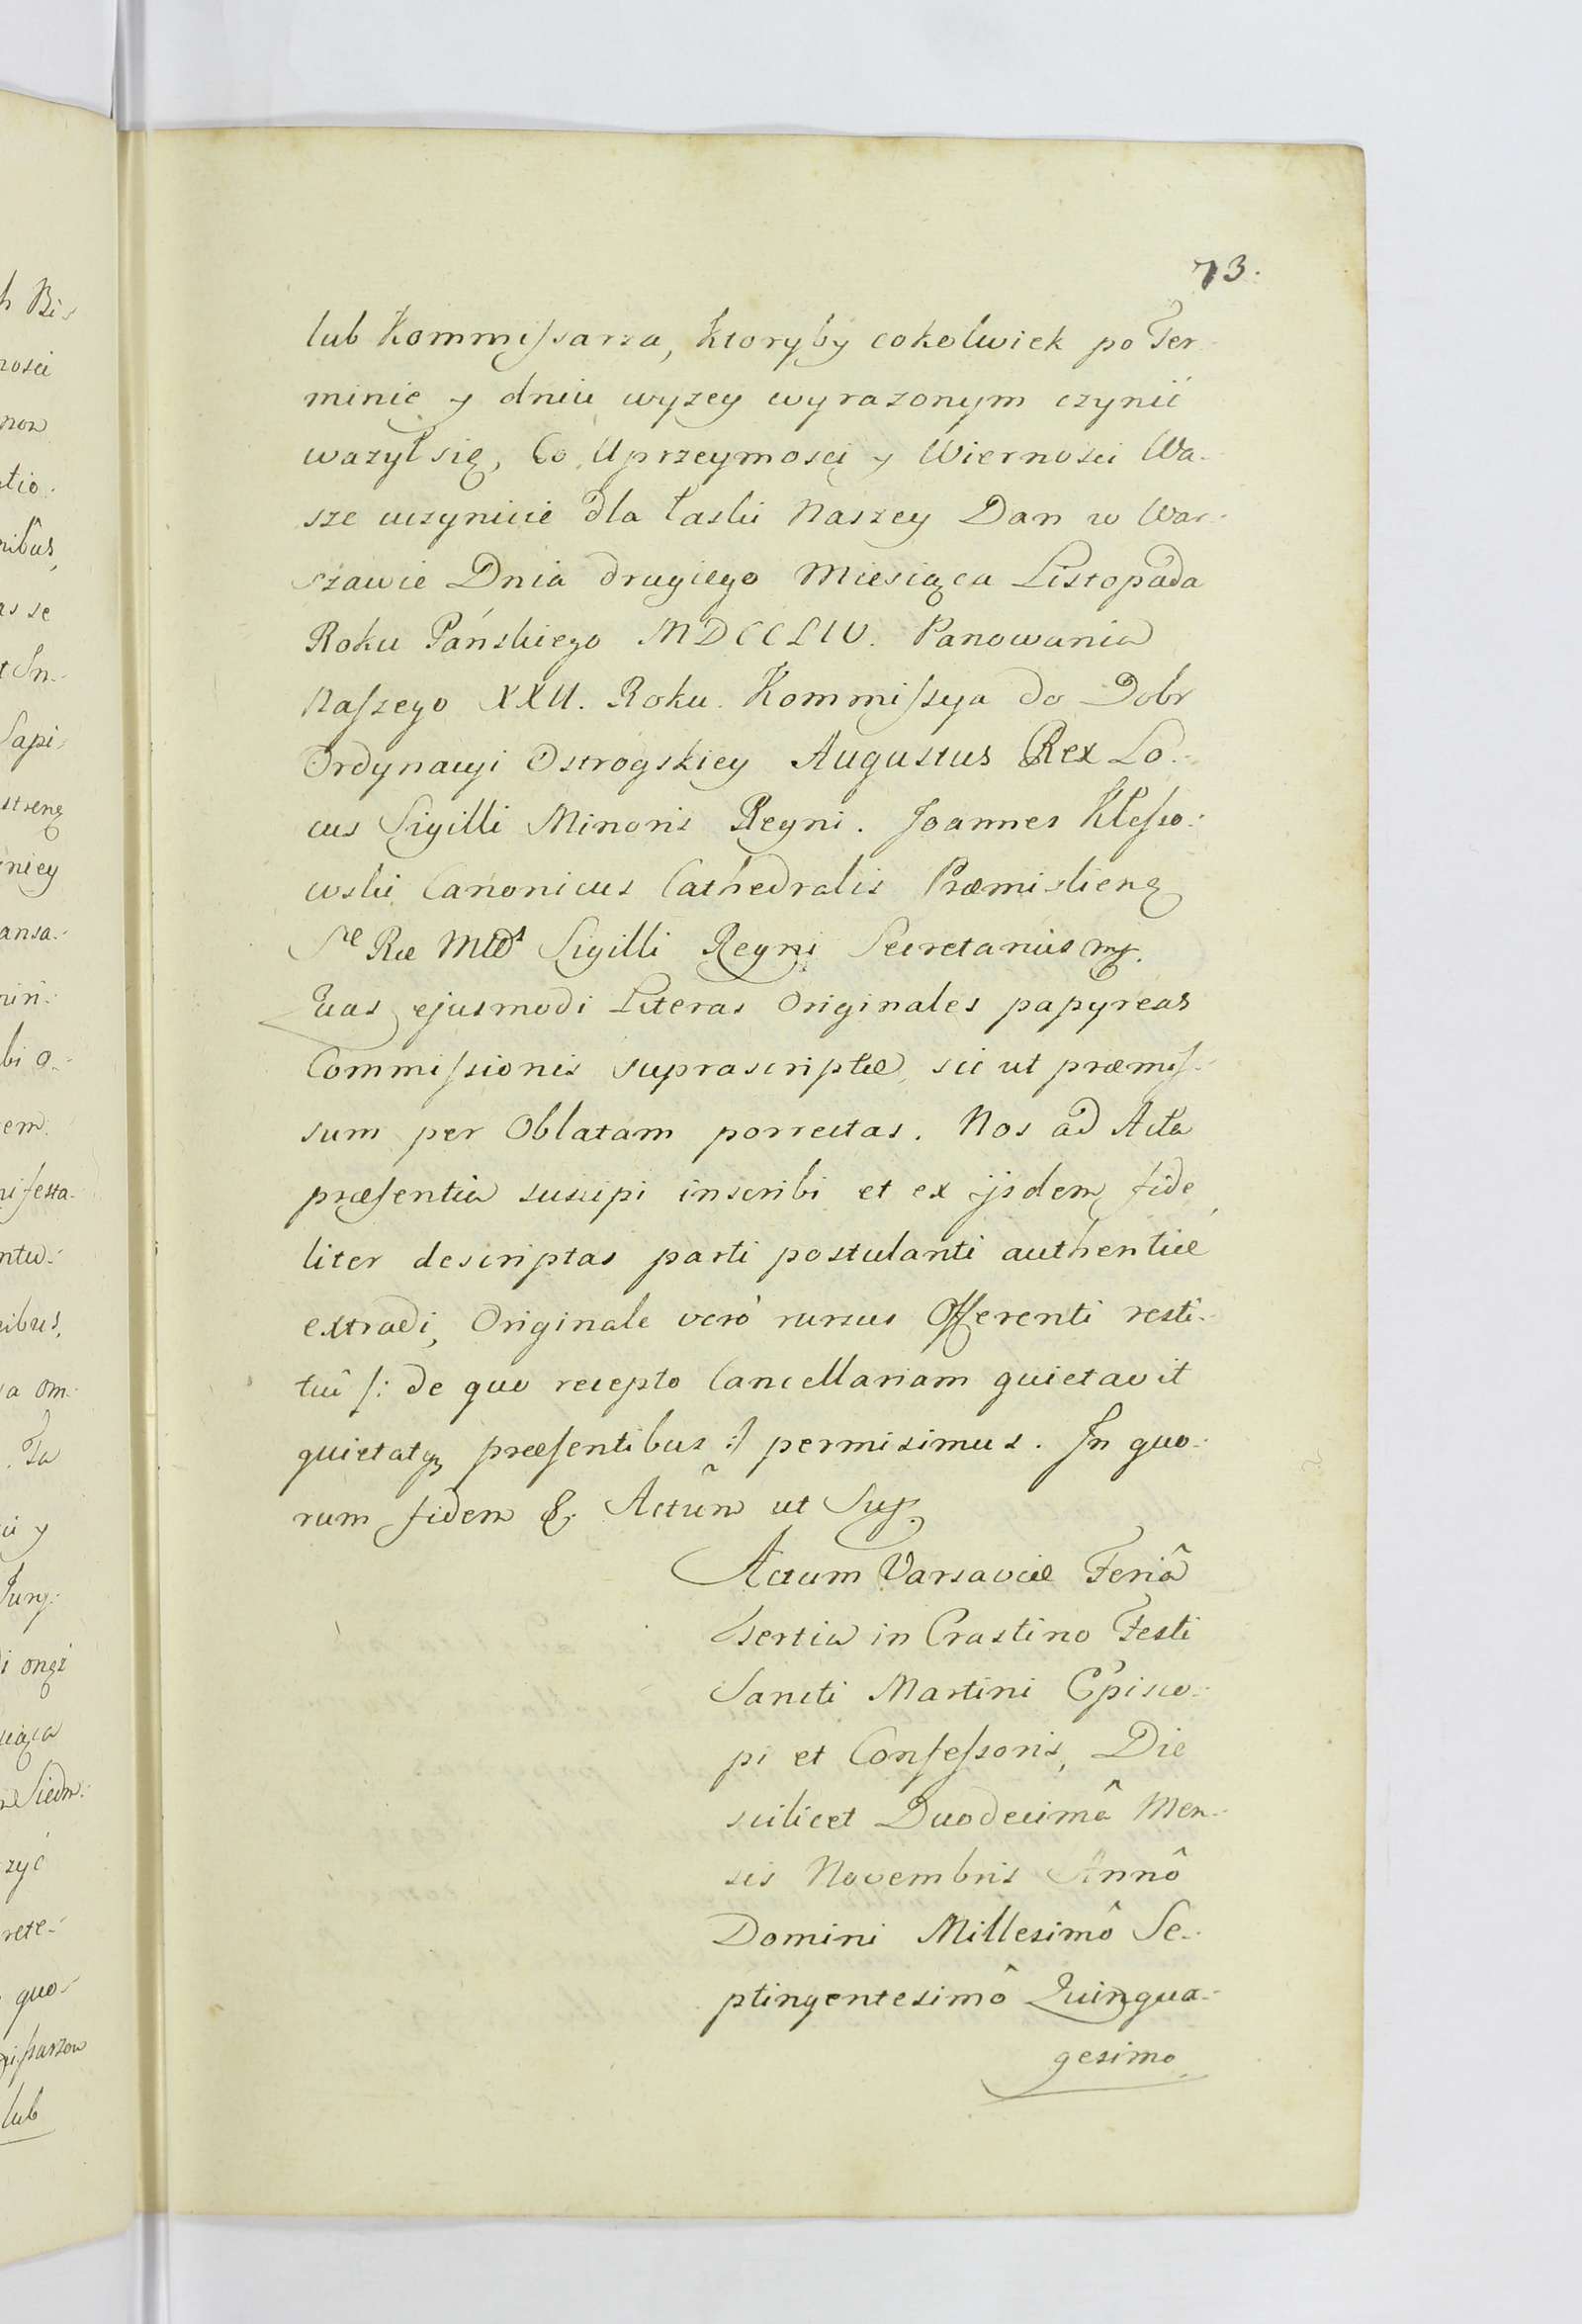 73.
lub Kommissarza, ktoryby cokolwiek po Ter-
minie y dniu wyzey wyrazonym czynić
wazył się, Co Uprzeymosci y Wiernosci Wa-
sze uczynicie dla łaski Naszey Dan w War-
szawie Dnia drugiego Miesiąca Listopada
Roku Pańskiego MDCCLIV. Panowania
Naszego XXII. Roku. Kommissya do Dobr
Ordynacyi Ostrogskiey Augustus Rex Lo-
cus Sigilli Minoris Regni. Joannes Kłesso-
wski Canonicus Cathedralis Præmisliens
Sæ Ræ Mtts Sigilli Regni Secretarius mp.
Quas ejusmodi Literas Originales papyreas
Commissionis suprascriptæ, sic ut præmis-
sum per Oblatam porrectas. Nos ad Acta
præsentia suscipi inscribi et ex ijsdem fide
liter descriptas parti postulanti authenticè
extradi, Originale verò rursus Offerenti resti-
tuî /: de quo recepto Cancellariam quietavit
quietatq præsentibus :/ permisimus. In quo-
rum fidem &. Actum̃ ut Sup.
Actum Varsaviæ Feriâ
tertia in Crastino Festi
Sancti Martini Episco-
pi et Confessoris, Die
scilicet Duodecimâ Men-
sis Novembris Annô
Domini Millesimô Se-
ptingentesimô Quinqua-
gesimo
h Bi
nosci
non
tio.
nibus,
as se
t In-
Sapi-
niey
ansa-
bi a-
em
nifesta-
ntu-
nibus,
a om-
. Ta
y
Jurg-
i
Siedm-
zyć
rete-
quo-
lub